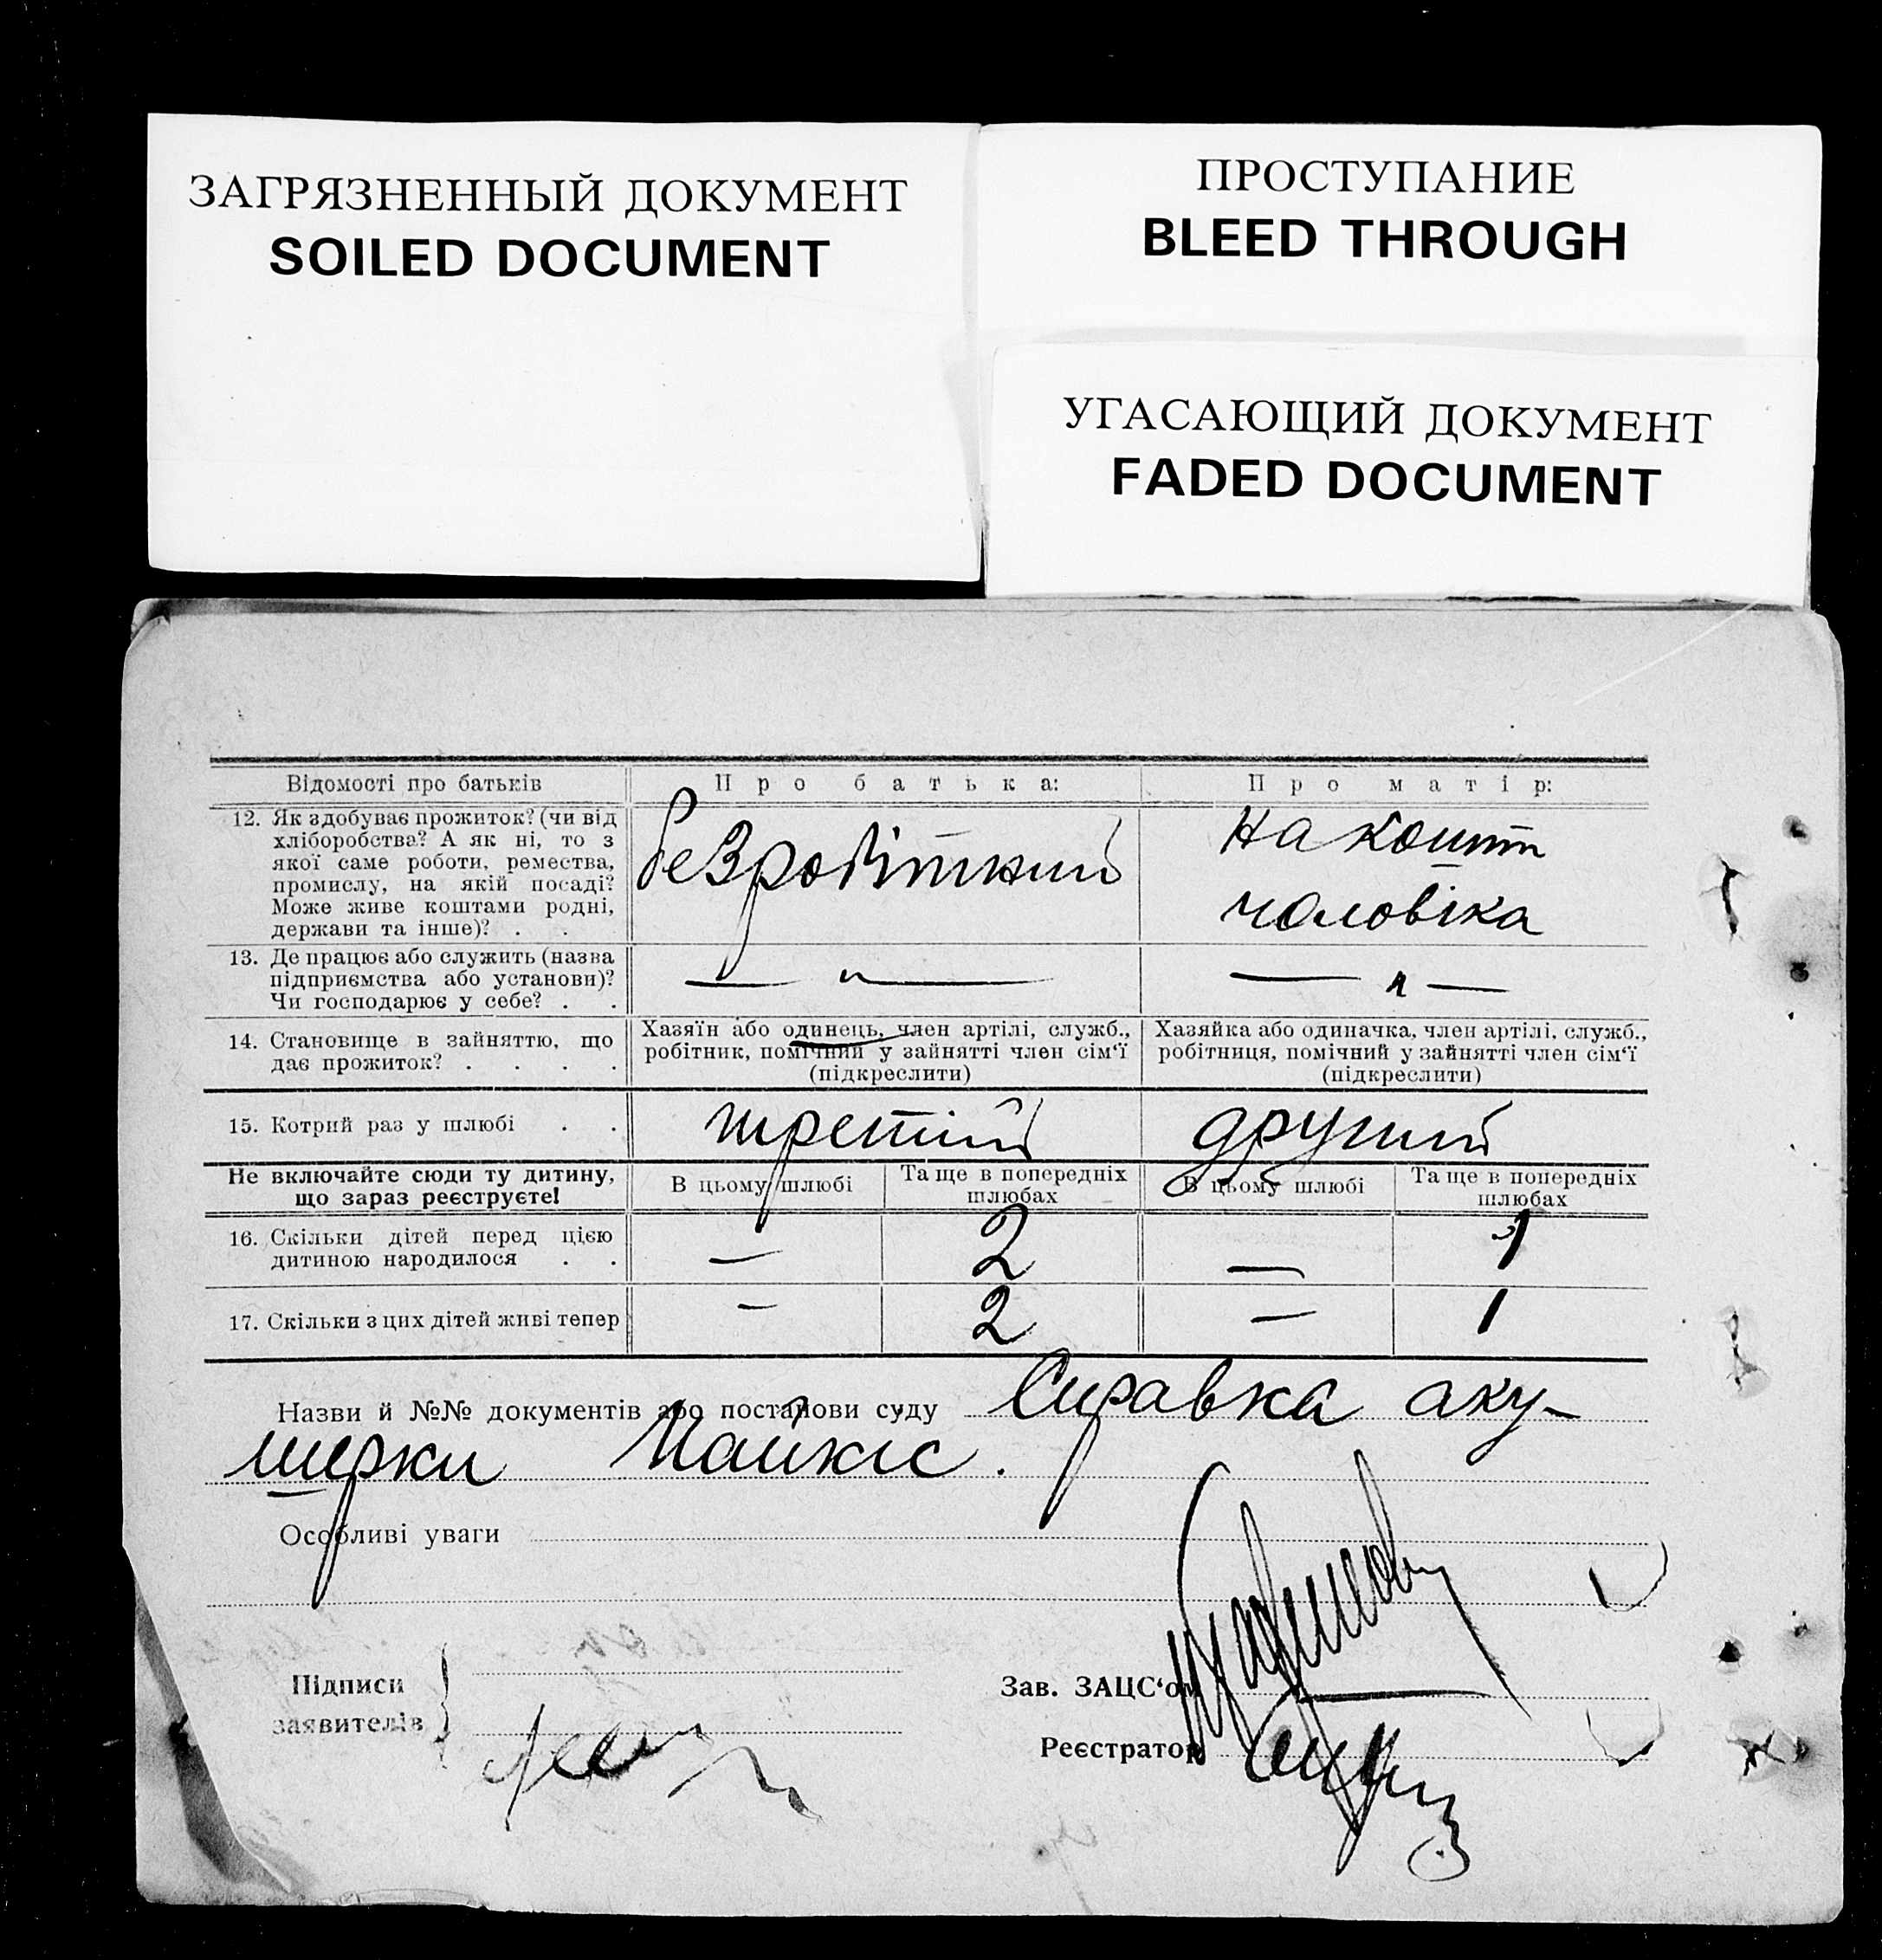 ЗАГРЯЗНЕННЫЙ ДОКУМЕНТ
SOILED DOCUMENT
ПРОСТУПАНИЕ
BLEED THROUGH
УГАСАЮЩИЙ ДОКУМЕНТ
FADED DOCUMENT
Відомості про батьків
Про батька:
Про матір:
12. Як здобуває прожиток? (чи від
хліборобства? А як ні, то з
якої саме роботи, ремества,
промислу, на якій посаді?
Може живе коштами родні,
держави та інше)? . .
безробітний
на кошти
чоловіка
13. Де працює або служить (назва
підприємства або установи)?
Чи господарює у себе? . .
— „ —
— „ —
14. Становище в зайняттю, що
дає прожиток? . . . .
Хазяїн або одинець, член артілі, служб.,
робітник, помічний у зайнятті член сім‘ї
(підкреслити)
Хазяйка або одиначка, член артілі, служб.,
робітниця, помічний у зайнятті член сім‘ї
(підкреслити)
15. Котрий раз у шлюбі . .
третій
другий
Не включайте сюди ту дитину,
що зараз реєструєте!
В цьому шлюбі
Та ще в попередніх
шлюбах
В цьому шлюбі
Та ще в попередніх
шлюбах
16. Скільки дітей перед цією
дитиною народилося . .
— 2 — 1
17. Скільки з цих дітей живі тепер
— 2 — 1
Назви й №№ документів або постанови суду Справка аку-
шерки Майкіс.
Особливі уваги
Підписи
заявителів
Зав. ЗАЦС‘ом
Реєстратор